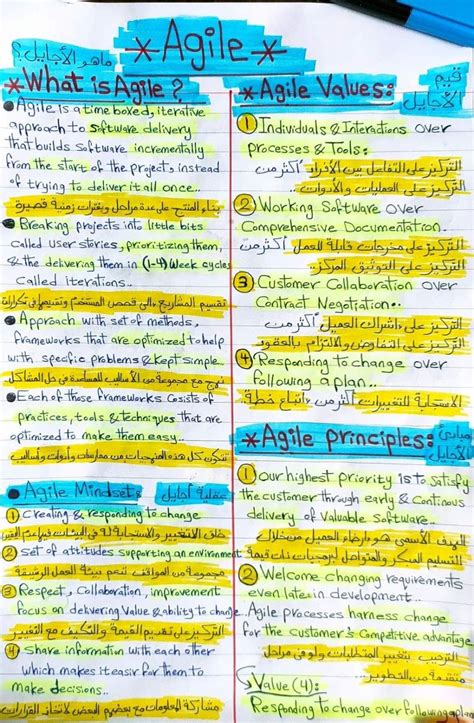 *Agile*
ماهو الأجايل؟
*What is Agile?
● Agile is a time boxed, iterative
approach to software delivery
that builds software incrementally
from the start of the projects instead
of trying to deliver it all once..
بناء المنتج على عدة مراحل وبفترات زمنية قصيرة
● Breaking projects into little bits
called user stories, prioritizing them,
& the delivering them in (1-4) Week cycles
Called iterations..
تقسيم المشاريع إلى قصص المستخدم وتقييمها في تكرارات
● Approach with set of methods,
frameworks that are optimized to help
with specific problems & kept simple
نهج مع مجموعة من الأساليب للمساعدة في حل المشاكل
● Each of those frameworks Cosists of
practices, tools & techniques that are
optimized to make them easy..
تتكون كل هذه المنهجيات من ممارسات وأدوات وأساليب
● Agile Mindset:
عقلية أجايل
① Creating & responding to change
خلق التغيير والاستجابة له في البيئات
② Set of attitudes supporting an environment
مجموعة من المواقف تدعم بيئة العمل الرشيقة
③ Respect, Collaboration, improvement
focus on delivering Value & ability to change
التركيز على تقديم القيمة والتكيف مع التغيير
④ Share information with each other
which makes it easir for them to
make decisions..
مشاركة المعلومات مع بعضهم البعض لاتخاذ القرارات
*Agile Values:
قيم
الأجايل
① Individuals & Interactions over
processes & Tools:
التركيز على التفاعل بين الأفراد أكثر من
التركيز على العمليات والأدوات..
② Working Software over
Comprehensive Documentation
التركيز على مخرجات قابلة للعمل أكثر من
التركيز على التوثيق المركز.
③ Customer Collaboration over
Contract Negotiation..
التركيز على اشراك العميل أكثر من
التركيز على التفاوض والالتزام بالعقود
④ Responding to change over
following a plan..
الاستجابة للتغييرات أكثر من اتباع خطة
*Agile principles:
مبادئ
الأجايل
① Our highest priority is to satisfy
the customer through early & Continous
delivery of Valuable Software..
الهدف الأسمى هو إرضاء العميل من خلال
التسليم المبكر والمتواصل لبرمجيات ذات قيمة
② Welcome changing requirements
even late in development..
Agile processes harness change
for the Customer's Competitive advantage
الترحيب بتغيير المتطلبات ولو في مراحل
متقدمة من التطوير..
Value (4):
Responding to change over following a plan